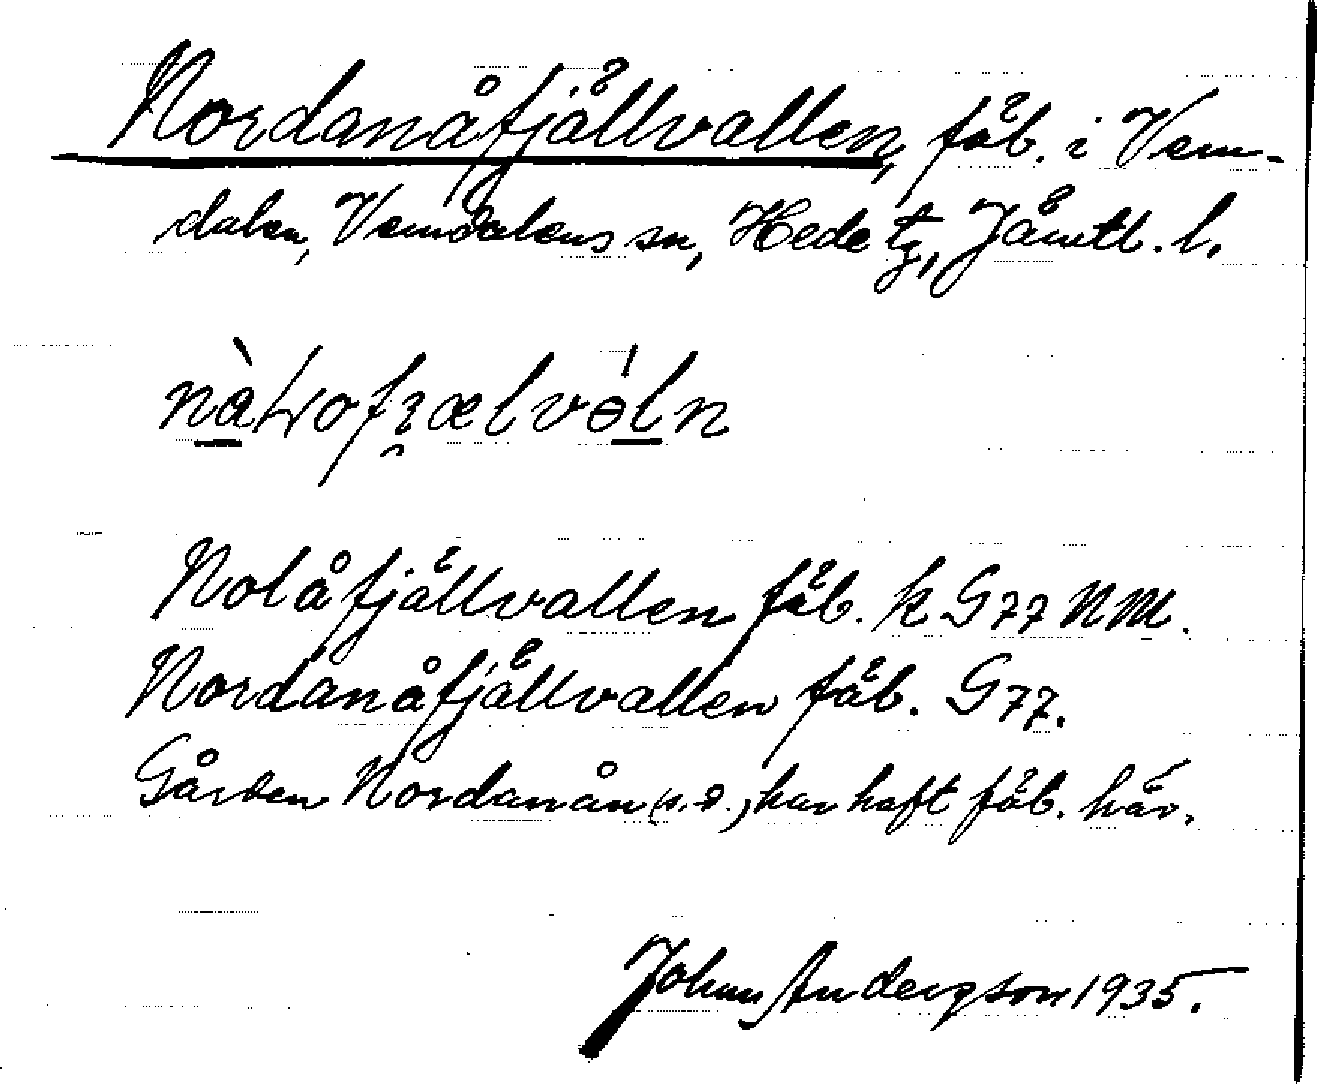 Nordanåfjällvallen, fäb. i Vem-
dalen, Vemdalens sn, Hede tg, Jämtl. l.
Nolåfjällvallen fäb. k G77 NM.
Nordanåfjällvallen fäb. G77.
Gården Nordanån (s.d.) har haft fäb. här.
Johan Andersson 1935.